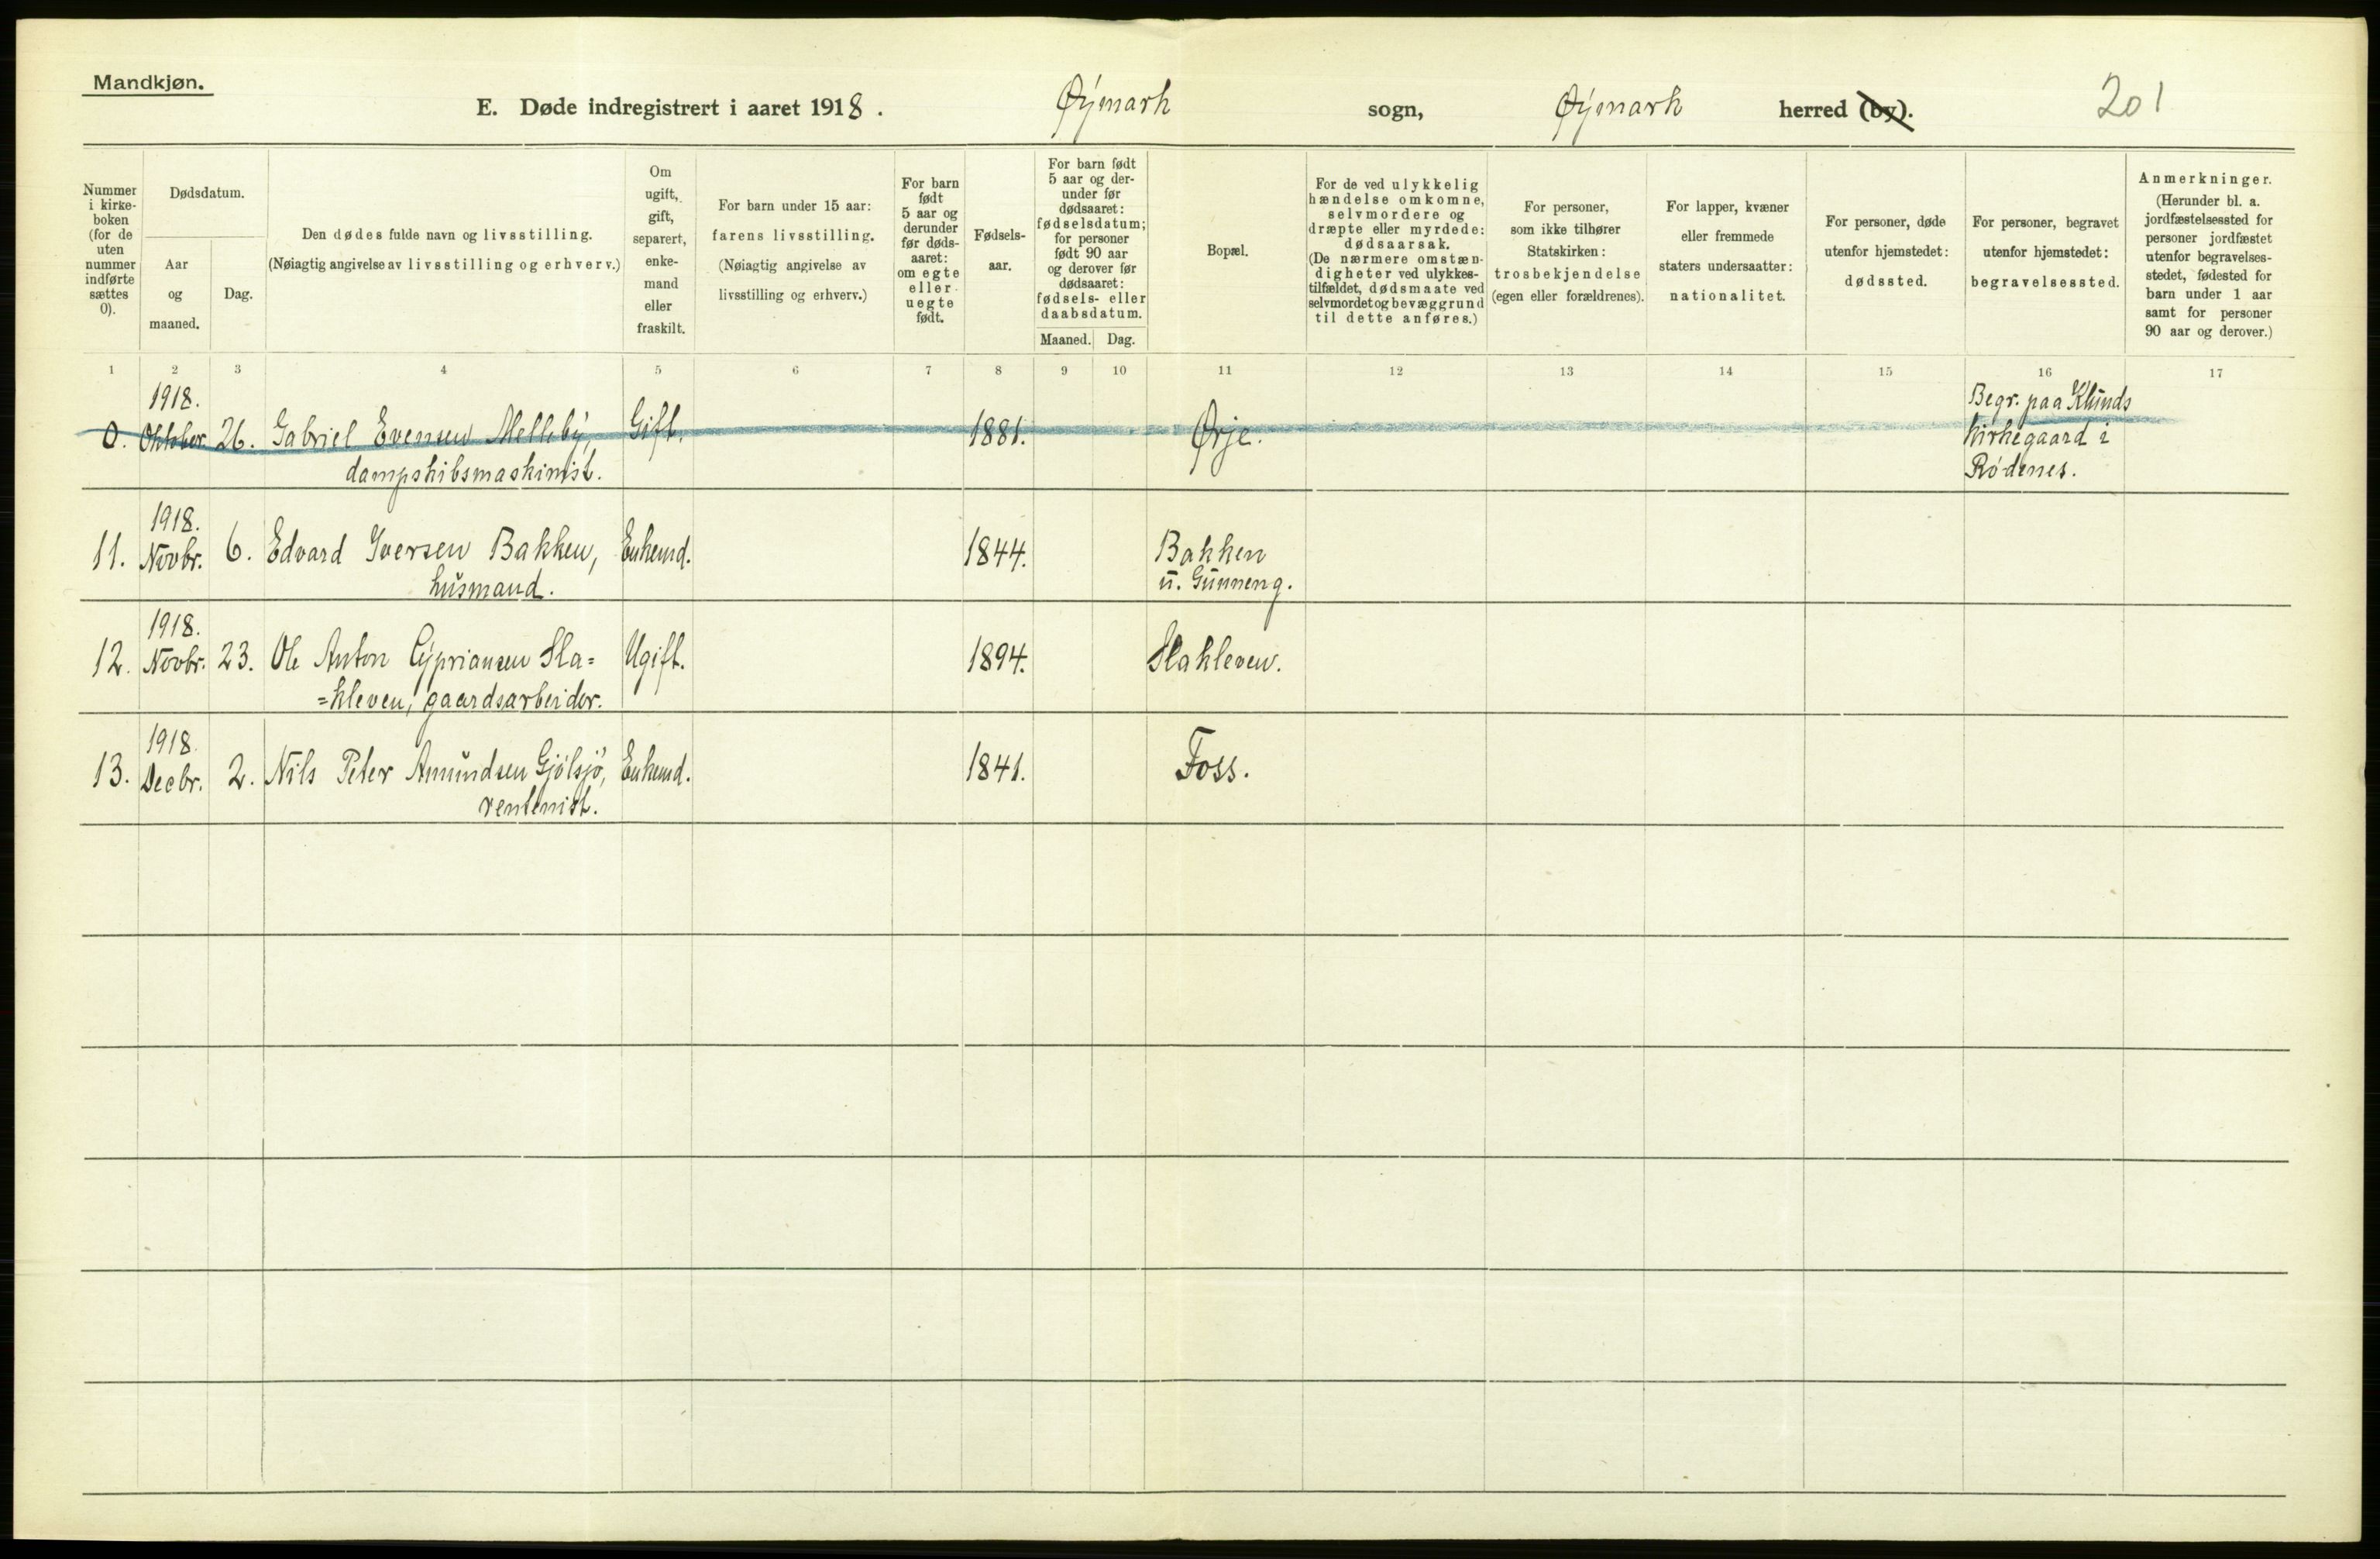 Mandkjøn.
E. Døde indregistrert i aaret 1918. Øymark sogn, Øymark herred (by). 201
Nummer i kirke-boken (for de uten nummer indførte sættes 0).
Dødsdatum.
Aar og maaned.
Dag.
Den dødes fulde navn og livsstilling.
(Nøiagtig angivelse av livsstilling og erhverv.)
Om ugift, gift, separert, enke-mand eller fraskilt.
For barn under 15 aar:
farens livsstilling.
(Nøiagtig angivelse av
livsstilling og erhverv.)
For barn født 5 aar og derunder før døds-aaret: om egte eller uegte født.
Fødsels-aar.
For barn født 5 aar og der-under før dødsaaret: fødselsdatum; for personer født 90 aar og derover før dødsaaret: fødsels- eller daabsdatum.
Maaned. Dag.
Bopæl.
For de ved ulykkelig
hændelse omkomne,
selvmordere og
dræpte eller myrdede:
dødsaarsak.
(De nærmere omstæn-
digheter ved ulykkes-
tilfældet, dødsmaate ved
selvmordet og bevæggrund
til dette anføres.)
For personer,
som ikke tilhører
Statskirken:
trosbekjendelse
(egen eller forældrenes).
For lapper, kvæner
eller fremmede
staters undersaatter:
nationalitet.
For personer, døde
utenfor hjemstedet:
dødssted.
For personer, begravet
utenfor hjemstedet:
begravelsessted.
Anmerkninger.
(Herunder bl. a.
jordfæstelsessted for
personer jordfæstet
utenfor begravelses-
stedet, fødested for
barn under 1 aar
samt for personer
90 aar og derover.)
1 2 3 4 5 6 7 8 9 10 11 12 13 14 15 16 17
1918. Begr. paa Klunds
0. Oktober 26. Gabriel Evensen Melleby, Gift. 1881. Ørje. kirkegaard i
dampskibsmaskinist. Rödenes.
1918.
11. Novbr. 6. Edvard Iversen Bakken, Enkemd. 1844. Bakken
husmand. u. Gunneng.
1918.
12. Novbr. 23. Ole Anton Cypriansen Sla= Ugift. 1894. Slakleven.
=kleven, gaardsarbeider.
1918.
13. Decbr. 2. Nils Peter Amundsen Gjölsjö, Enkemd. 1841. Foss.
rentenist.